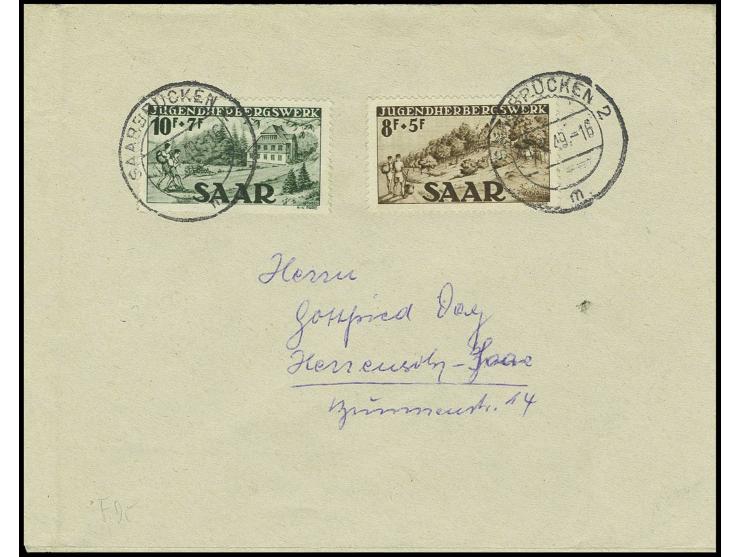 SAARBRÜCKEN
JUGENDHERBERGSWERK
10F+7F
SAAR
JUGENDHERBERGSWERK
8F+5F
SAAR
SAARBRÜCKEN 2
49.-16
m
Herrn
Gottfried Day
Herrensohr-Saar
Brunnenstr. 14